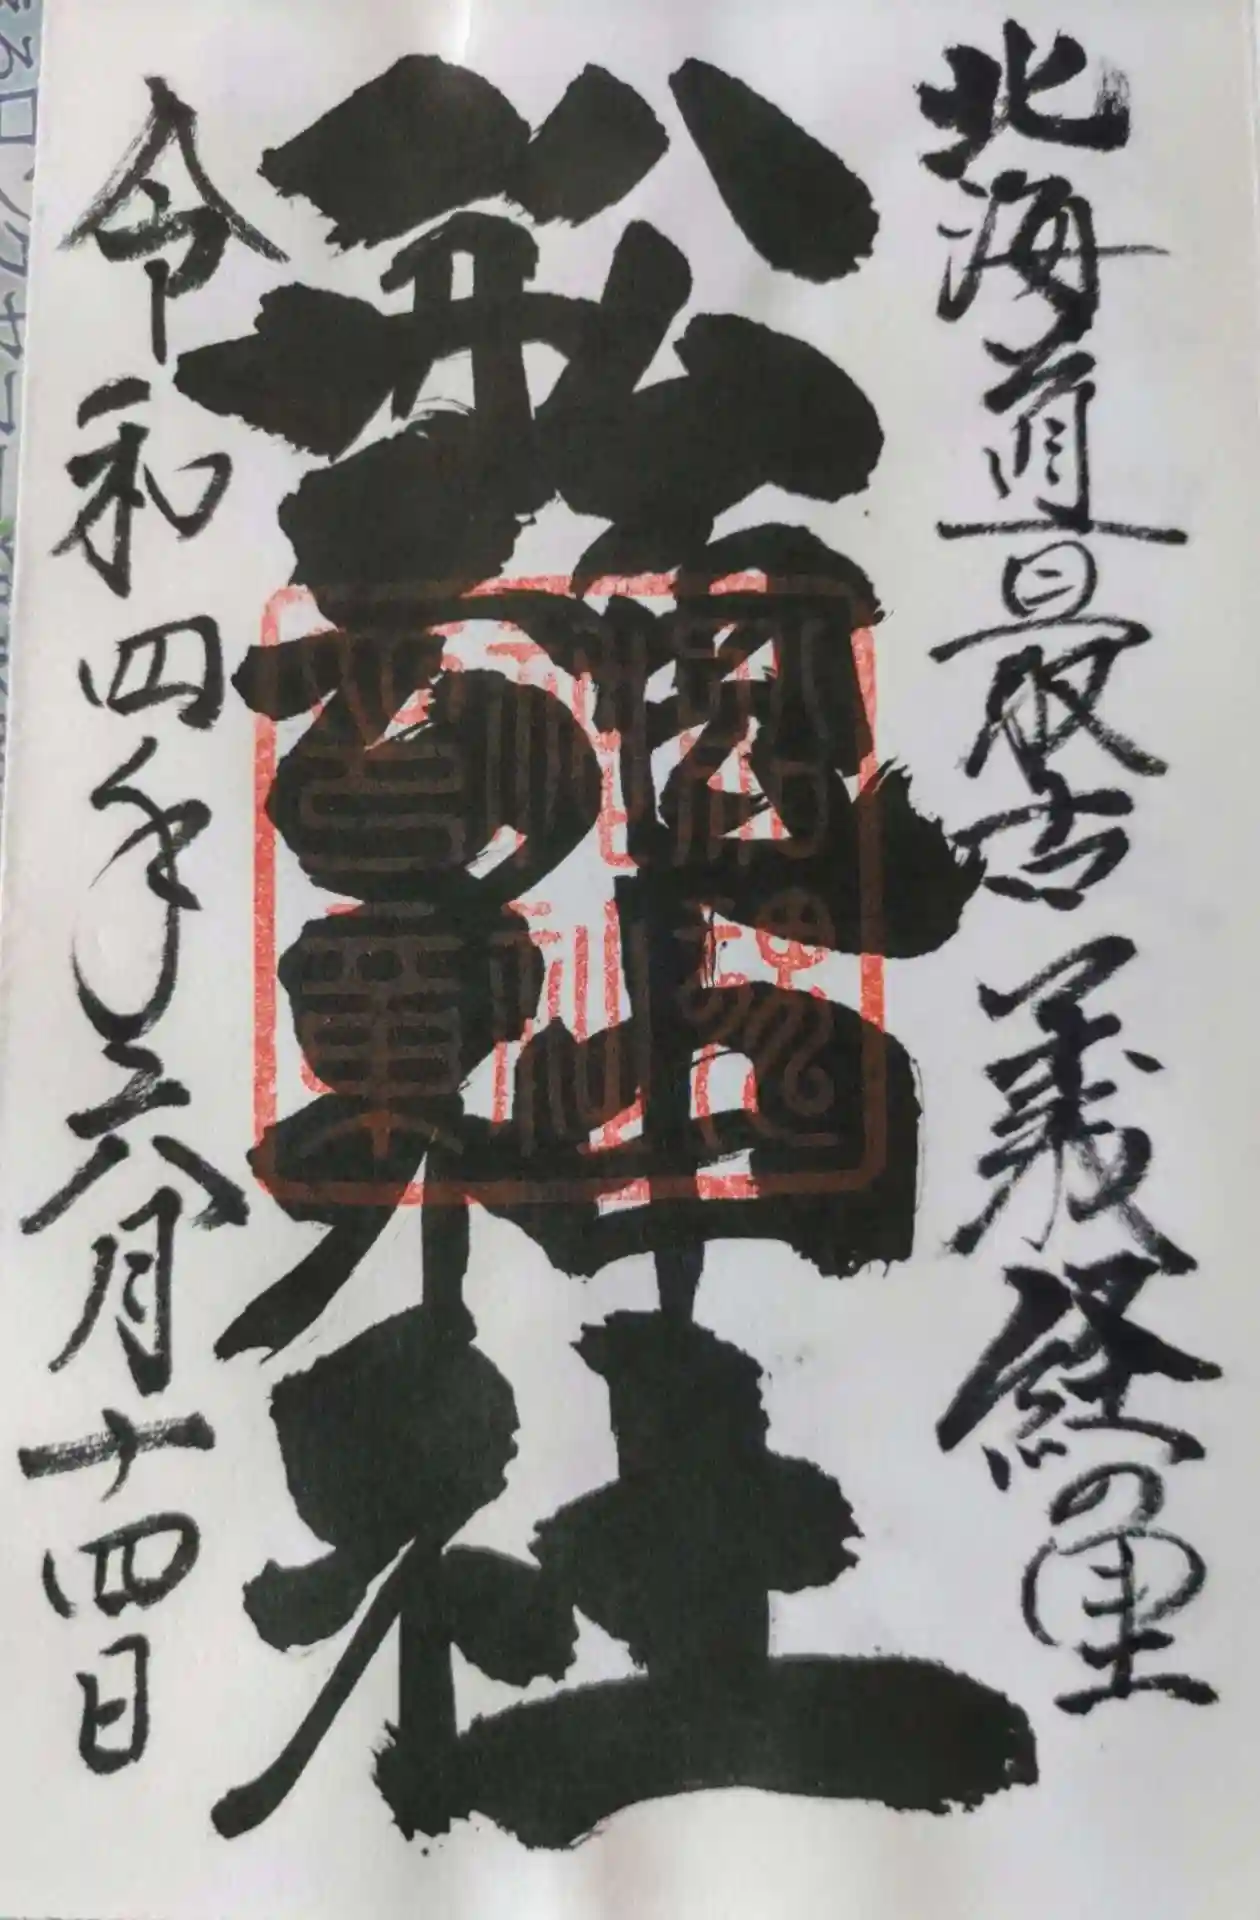 北海道最古 義経の里
舩魂神社
令和四年六月十四日